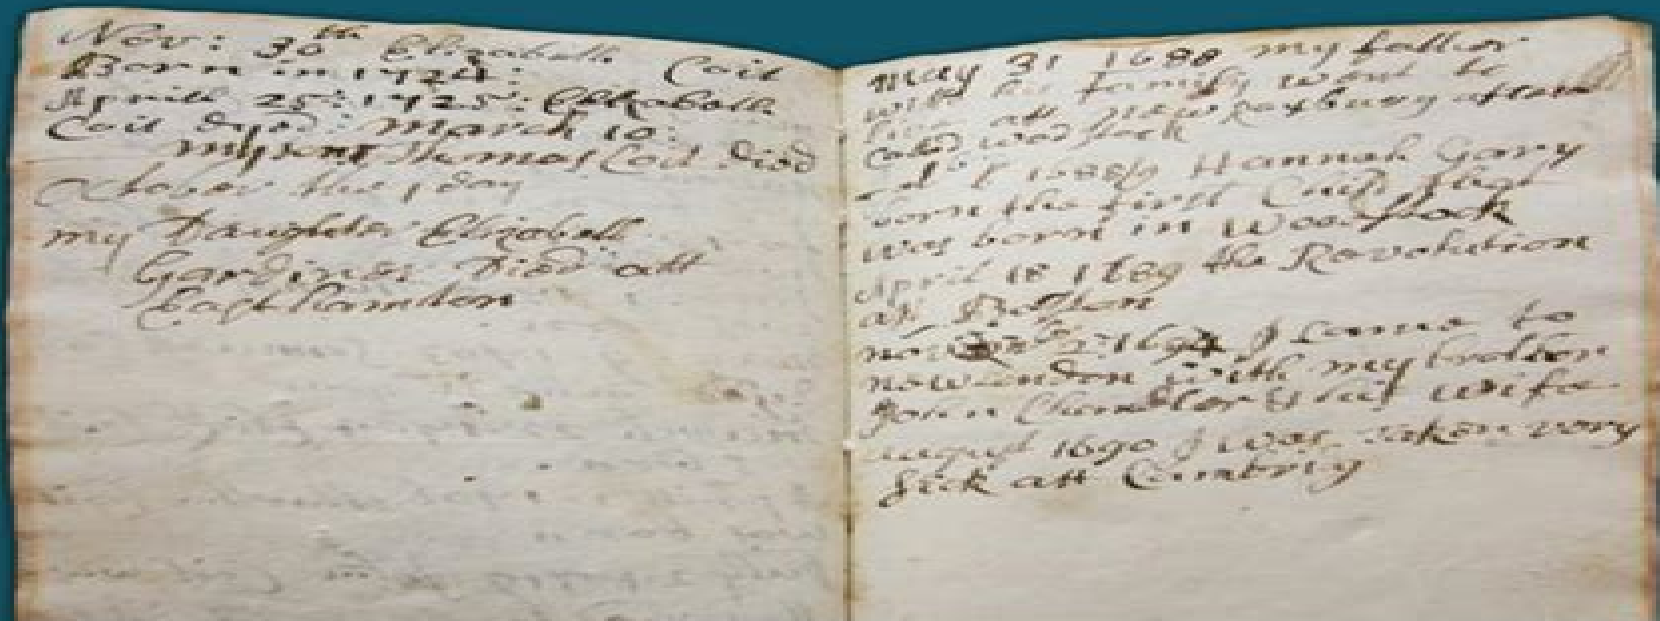 Nov: 30th Elizabeth Coit
Born in 1724:
Aprill 25: 1725: Elizabeth
Coit dyed: March 10:
Thomas Coit died
October the 1 day
my Daughter Elizabeth
Gardiner Died att
Easthamton
may 31 1688 my father
with his family went to
live att new Roxbury after
caled woodstock
1688/9 Hannah Gary
born the first Child that
was born in Woodstock
April 18 1689 the Revolution
att Boston
I came to
with my brother
John Chandler & his wife
august 1690 I was taken very
sick att